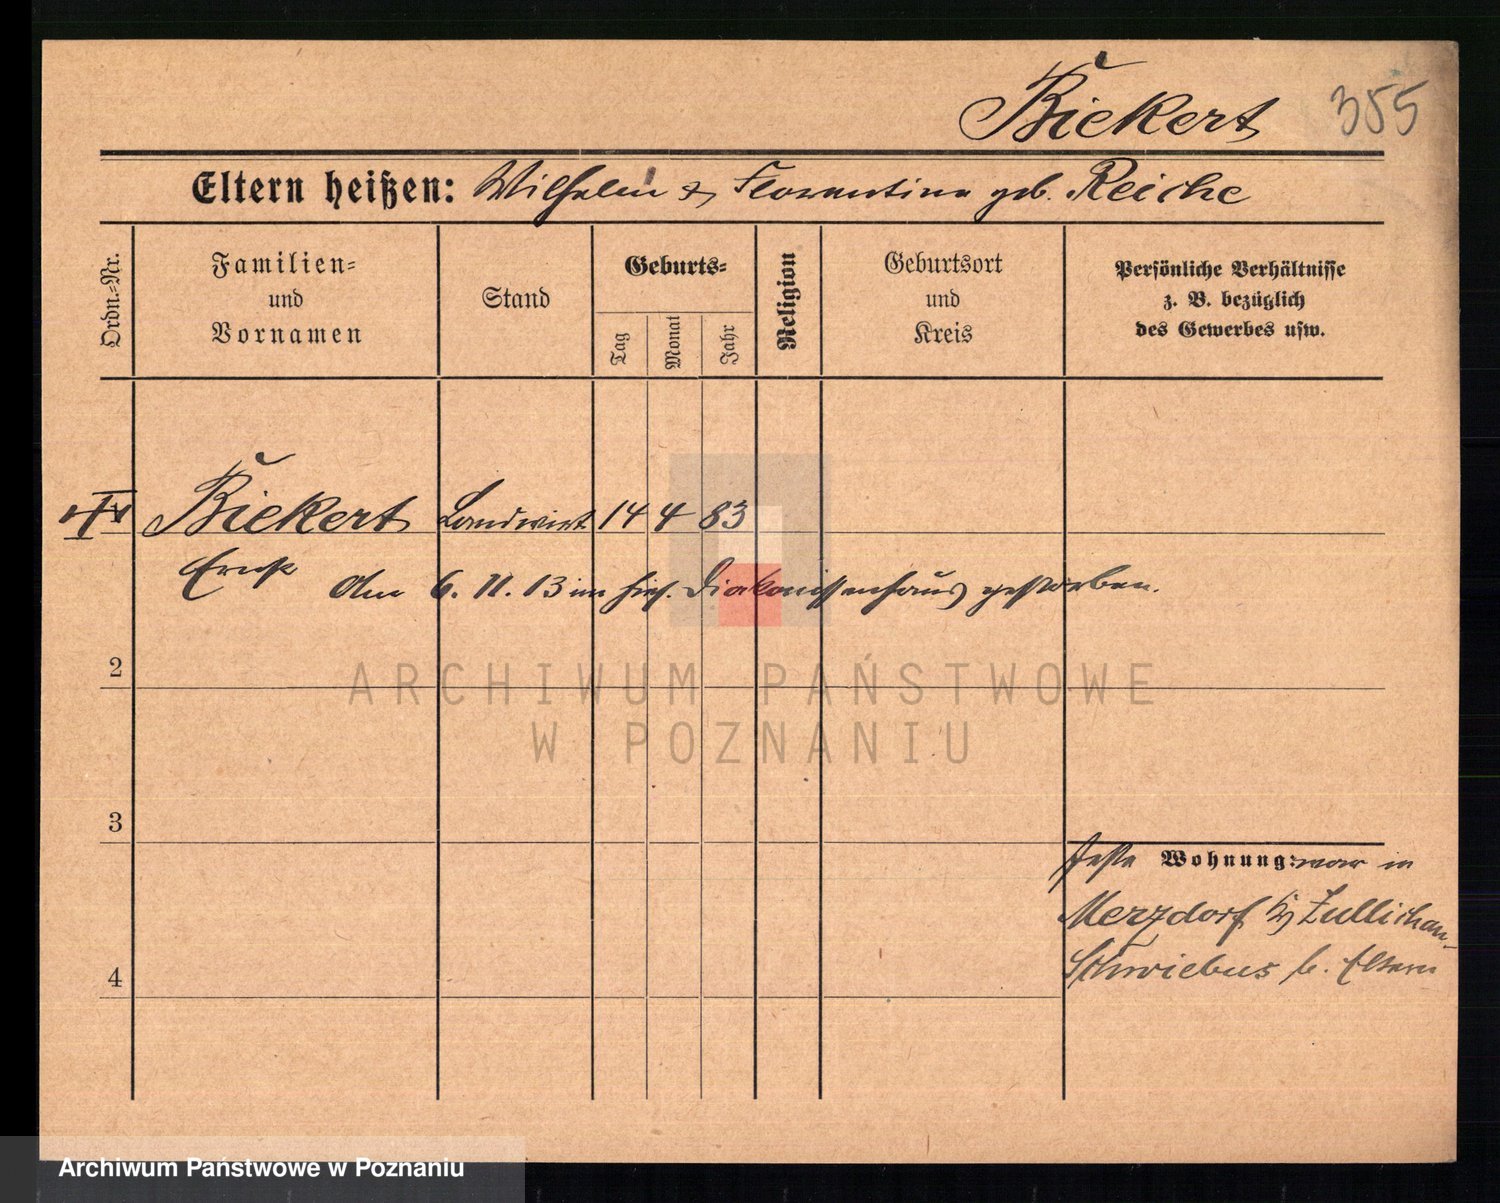 Biekert 355
Eltern heißen: Wilhelm & Florentine geb. Reiche
Ordn.-Nr.
Familien-
und
Vornamen
Stand
Geburts-
Tag
Monat
Jahr
Religion
Geburtsort
und
Kreis
Persönliche Verhältnisse
z. B. bezüglich
des Gewerbes usw.
Biekert Landwirt 14 4 83
Ernst
den 6. 11. 13 im hies. Diakonissenhaus gestorben.
2
ARCHIWUM PAŃSTWOWE
W POZNANIU
3
feste Wohnung: war in
Merzdorf Kr Züllichau-
Schwiebus b. Eltern
4
Archiwum Państwowe w Poznaniu